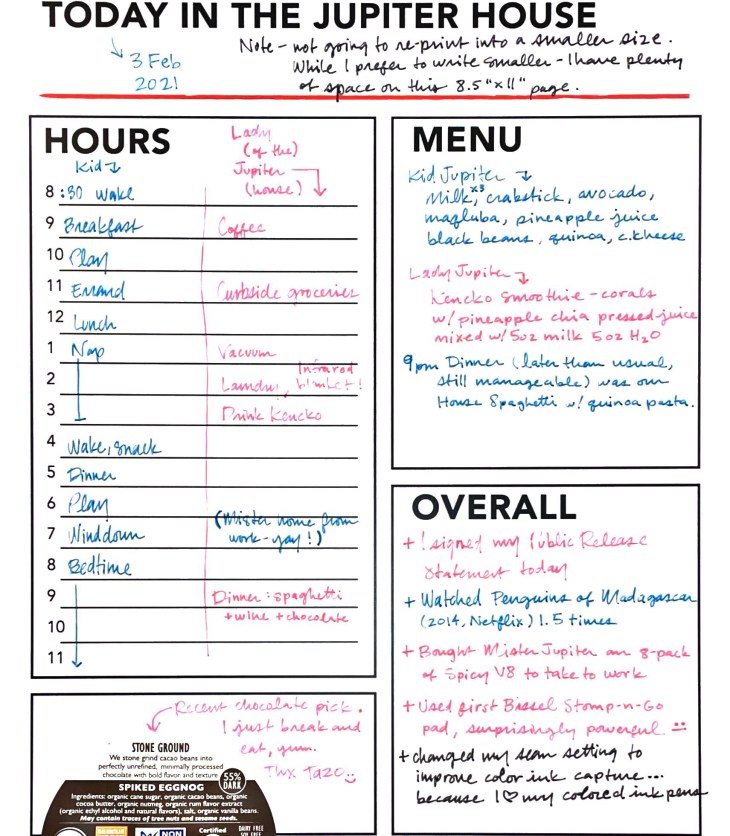 TODAY IN THE JUPITER HOUSE
3 Feb
2021
Note - not going to re-print into a smaller size.
While I prefer to write smaller - I have plenty
of space on this 8.5"x11" page.
HOURS
Kid
Lady
(of the)
Jupiter
(house)
8 :30 Wake
9 Breakfast Coffee
10 Play
11 Errand Curbside groceries
12 Lunch
1 Nap Vacuum
2 Laundry, Infrared blanket!
3 Drink Kencko
4 Wake, snack
5 Dinner
6 Play
7 Wind down (Mister home from
work - yay!)
8 Bedtime
9 Dinner: spaghetti
10 + wine + chocolate
11
MENU
Kid Jupiter
Milk x3, crabstick, avocado,
maqluba, pineapple juice
black beans, quinoa, c.cheese
Lady Jupiter
Kencko smoothie - corals
w/ pineapple chia pressed juice
mixed w/ 5oz milk 5oz H2O
9pm Dinner (later than usual,
still manageable) was our
House Spaghetti w/ quinoa pasta.
OVERALL
+ I signed my Public Release
Statement today
+ Watched Penguins of Madagascar
(2014, Netflix) 1.5 times
+ Bought Mister Jupiter an 8-pack
of Spicy V8 to take to work
+ Used first Bissel Stomp-n-Go
pad, surprisingly powerful
+ changed my scan setting to
improve color ink capture...
because I ♡ my colored ink pens
Recent chocolate pick.
I just break and
eat, yum.
Thx Taza
STONE GROUND
We stone grind cacao beans into
perfectly unrefined, minimally processed
chocolate with bold flavor and texture
55%
DARK
SPIKED EGGNOG
Ingredients: organic cane sugar, organic cacao beans, organic
cocoa butter, organic nutmeg, organic rum flavor extract
(organic ethyl alcohol and natural flavors), salt, organic vanilla beans.
May contain traces of tree nuts and sesame seeds.
NON
Certified
DAIRY FREE
SOY FREE